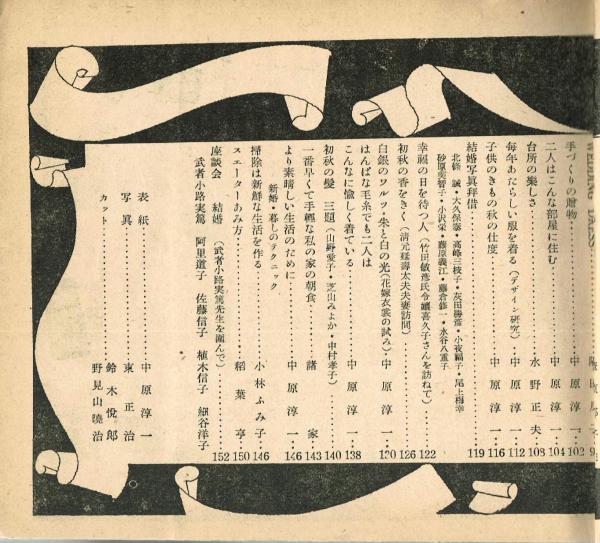 手づくりの贈物……中原淳一…102
二人はこんな部屋に住む……中原淳一…104
台所の楽しさ……水野正夫…108
毎年あたらしい服を着る(デザイン研究)…中原淳一…112
子供のきもの秋の仕度……中原淳一…116
結婚写真拝借……119
北條誠・大久保泰・高峰三枝子・灰田勝彦・小夜福子・尾上梅幸
砂原美智子・小沢栄・藤原義江・藤倉修一・水谷八重子
幸福の日を待つ人(竹田敏彦氏令嬢喜久子さんを訪ねて)…122
初秋の香をきく(清元延壽太夫夫妻訪問)…126
白銀のワルツ・朱と白の光(花嫁衣裳の試み)…中原淳一…120
はんぱな毛糸でも二人は
こんなに愉しく着ている……中原淳一…138
初秋の髪 三題(山野愛子・芝山みよか・中村孝子)…140
一番早くて手軽な私の家の朝食……諸家…143
より素晴しい生活のために……中原淳一…146
新婚・暮しのテクニック
掃除は新鮮な生活を作る……小林ふみ子…146
スエーターあみ方……稻葉亨…150
座談会 結婚(武者小路実篤先生を囲んで)……152
武者小路実篤 阿里道子 佐藤信子 植木信子 細谷洋子
表紙……中原淳一
写真……東正治
カット……鈴木悦郎
野見山暁治